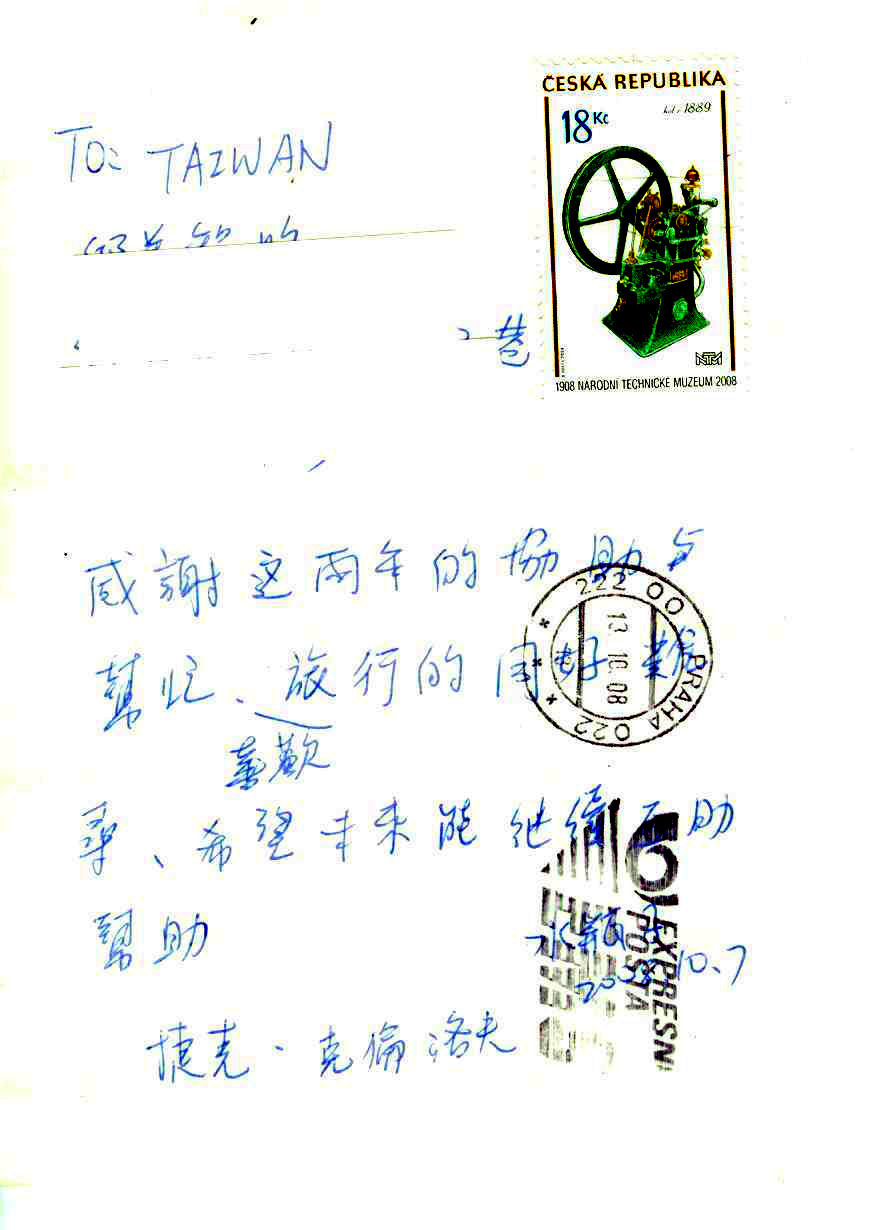 ČESKÁ REPUBLIKA
18 Kč
1889
1908 NÁRODNÍ TECHNICKÉ MUZEUM 2008
TO: TAIWAN
巷
感謝这兩年的協助与
幫忙、旅行的同好難
喜歡
尋、希望未來能继續互助
幫助
水瓶子
2008.10.7
捷克·克倫洛夫
222 00 PRAHA 022
13.10.08
EXPRESNÍ
POŠTA